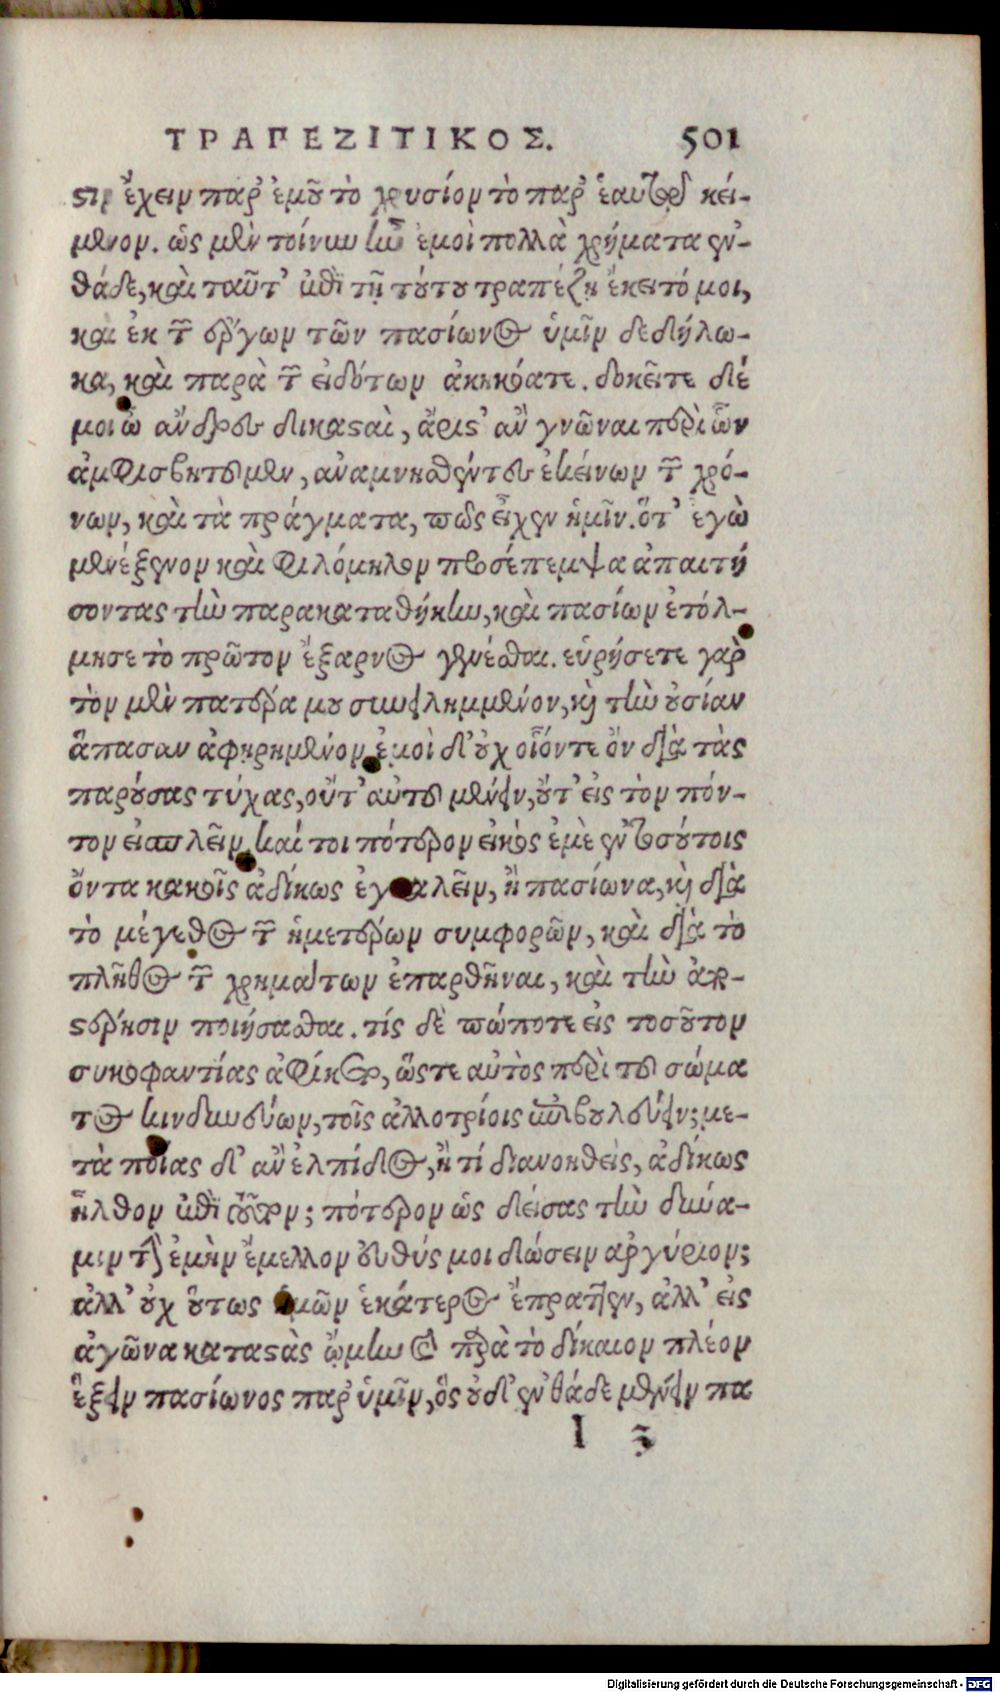 ΤΡΑΠΕΖΙΤΙΚΟΣ. 501
ϛιν ἔχειν παρ' ἐμοῦ τὸ χρυσίον τὸ παρ' ἑαυτῷ κεί-
μενον. ὡς μὲν τοίνυν ἦν ἐμοὶ πολλὰ χρήματα ἐν-
θάδε, καὶ ταῦτ' ἐπὶ τῇ τούτου τραπέζῃ ἔκειτό μοι,
καὶ ἐκ τῶν ἔργων τῶν πασίωνος ὑμῖν δεδήλω-
κα, καὶ παρὰ τῶν εἰδότων ἀκηκόατε. δοκεῖτε δέ
μοι ὦ ἄνδρες δικαϛαὶ, ἄριϛ' ἂν γνῶναι περὶ ὧν
ἀμφισβητοῦμεν, ἀναμνησθέντες ἐκείνων τῶν χρό-
νων, καὶ τὰ πράγματα, πῶς εἶχεν ἡμῖν. ὅτ' ἐγὼ
μενέξενον καὶ φιλόμηλον προσέπεμψα ἀπαιτή
σοντας τὴν παρακαταθήκην, καὶ πασίων ἐτόλ-
μησε τὸ πρῶτον ἔξαρνος γενέσθαι. εὑρήσετε γὰρ
τὸν μὲν πατέρα μου συνειλημμένον, καὶ τὴν οὐσίαν
ἅπασαν ἀφῃρημένον, ἐμοὶ δ' οὐχ οἷόντε ὂν διὰ τὰς
παρούσας τύχας, οὔτ' αὐτοῦ μένειν, οὔτ' εἰς τὸν πόν-
τον εἰσπλεῖν. καί τοι πότερον εἰκὸς ἐμὲ ἐν τοσούτοις
ὄντα κακοῖς ἀδίκως ἐγκαλεῖν, ἢ πασίωνα, καὶ διὰ
τὸ μέγεθος τῶν ἡμετέρων συμφορῶν, καὶ διὰ τὸ
πλῆθος τῶν χρημάτων ἐπαρθῆναι, καὶ τὴν ἀπο-
ϛέρησιν ποιήσασθαι. τίς δὲ πώποτε εἰς τοσοῦτον
συκοφαντίας ἀφίκετο, ὥστε αὐτὸς περὶ τοῦ σώμα
τος κινδυνεύων, τοῖς ἀλλοτρίοις ἐπιβουλεύειν; με-
τὰ ποίας δ' ἂν ἐλπίδος, ἢ τί διανοηθεὶς, ἀδίκως
ἦλθον ἐπὶ τοῦτον; πότερον ὡς δείσας τὴν δύνα-
μιν τὴν ἐμὴν ἔμελλον εὐθύς μοι δώσειν ἀργύριον;
ἀλλ' οὐχ οὕτως ἡμῶν ἑκάτερος ἔπραττεν, ἀλλ' εἰς
ἀγῶνα καταϛὰς ᾤμην καὶ παρὰ τὸ δίκαιον πλέον
ἕξειν πασίωνος παρ' ὑμῖν, ὃς οὐδ' ἐνθάδε μένειν πα
I 3
Digitalisierung gefördert durch die Deutsche Forschungsgemeinschaft - DFG